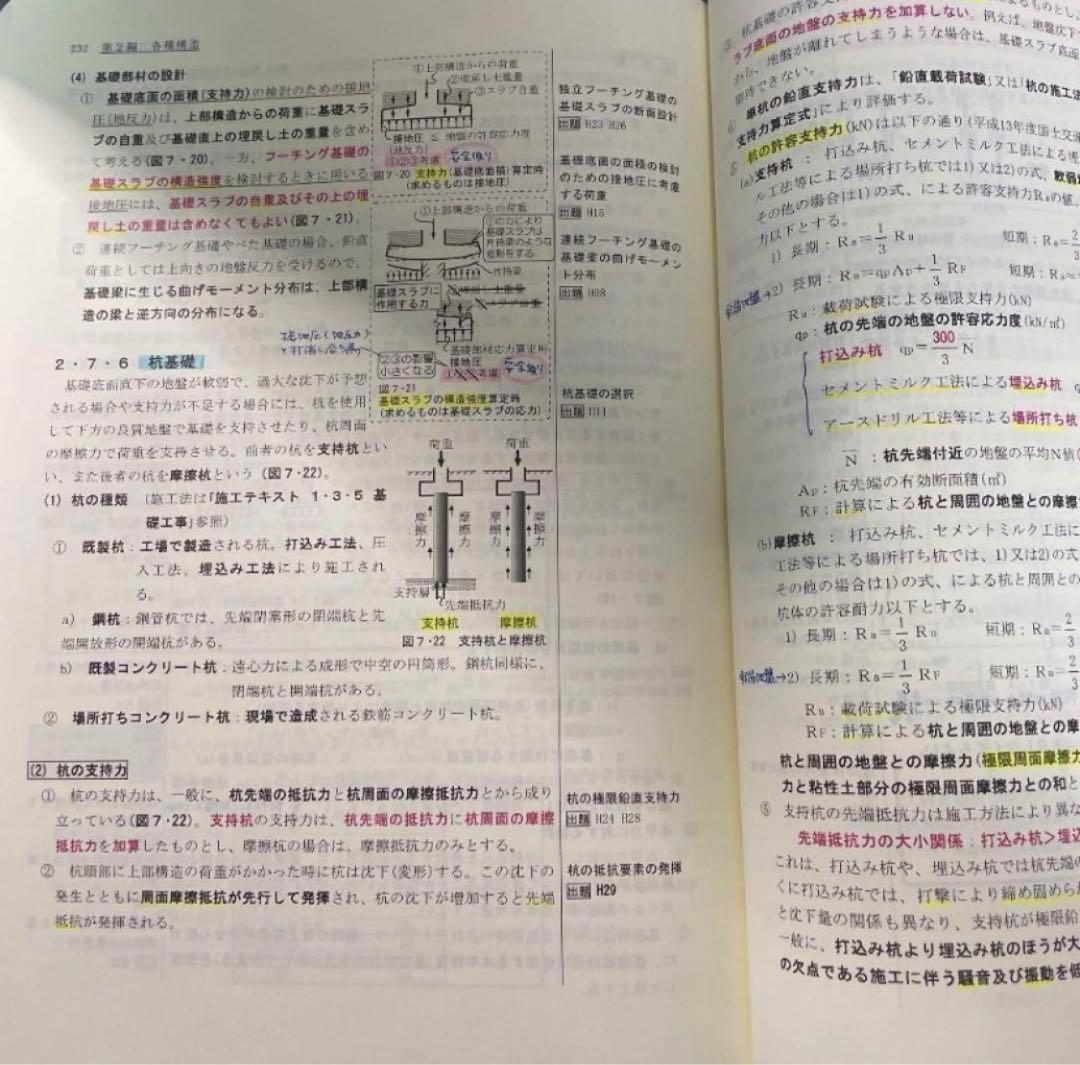 232 第2編 各種構造
(4) 基礎部材の設計
① 基礎底面の面積(支持力)の検討のための接地
圧(地反力)は、上部構造からの荷重に基礎スラ
ブの自重及び基礎直上の埋戻し土の重量を含め
て考える(図7・20)。一方、フーチング基礎の
基礎スラブの構造強度を検討するときに用いる
接地圧には、基礎スラブの自重及びその上の埋
戻し土の重量は含めなくてもよい(図7・21)。
② 連続フーチング基礎やべた基礎の場合、鉛直
荷重としては上向きの地盤反力を受けるので、
基礎梁に生じる曲げモーメント分布は、上部構
造の梁と逆方向の分布になる。
①上部構造からの荷重
②埋戻し土重量
③スラブ自重
接地圧 ≦ 地盤の許容応力度
(地反力)
①②③考慮
安全側
図7-20 支持力(基礎底面積)算定時
(求めるものは接地圧)
①上部構造からの荷重
①の力により
基礎スラブは
片持梁のような
変形をする
片持梁
基礎スラブに
作用する力
②埋戻し土重量
③スラブ自重
接地圧(地反力)
と打消し合う
②③の影響
小さくなる
基礎部材応力算定用
接地圧
①②③考慮
安全側
図7-21
基礎スラブの構造強度算定時
(求めるものは基礎スラブの応力)
独立フーチング基礎の
基礎スラブの断面設計
出題 H23 H26
基礎底面の面積の検討
のための接地圧に考慮
する荷重
出題 H15
連続フーチング基礎の
基礎梁の曲げモーメン
ト分布
出題 H08
2・7・6 杭基礎
基礎底面直下の地盤が軟弱で、過大な沈下が予想
される場合や支持力が不足する場合には、杭を使用
して下方の良質地盤で基礎を支持させたり、杭周面
の摩擦力で荷重を支持させる。前者の杭を支持杭とい
い、また後者の杭を摩擦杭という(図7・22)。
杭基礎の選択
出題 H11
(1) 杭の種類 (施工法は「施工テキスト 1・3・5 基
礎工事」参照)
① 既製杭：工場で製造される杭。打込み工法、圧
入工法、埋込み工法により施工され
る。
a) 鋼杭：鋼管杭では、先端閉塞形の閉端杭と先
端開放形の開端杭がある。
b) 既製コンクリート杭：遠心力による成形で中空の円筒形。鋼杭同様に、
閉端杭と開端杭がある。
② 場所打ちコンクリート杭：現場で造成される鉄筋コンクリート杭。
荷重 荷重
摩擦力 摩擦力 摩擦力 摩擦力
支持層
先端抵抗力
支持杭 摩擦杭
図7・22 支持杭と摩擦杭
(2) 杭の支持力
① 杭の支持力は、一般に、杭先端の抵抗力と杭周面の摩擦抵抗力とから成り
立っている(図7・22)。支持杭の支持力は、杭先端の抵抗力に杭周面の摩擦
抵抗力を加算したものとし、摩擦杭の場合は、摩擦抵抗力のみとする。
② 杭頭部に上部構造の荷重がかかった時に杭は沈下(変形)する。この沈下の
発生とともに周面摩擦抵抗が先行して発揮され、杭の沈下が増加すると先端
抵抗が発揮される。
杭の極限鉛直支持力
出題 H24 H28
杭の抵抗要素の発揮
出題 H29
③ 杭基礎の許容支持力
ラブ底面の地盤の支持力を加算しない。例えば、地盤沈下
から、地盤が離れてしまうような場合は、基礎スラブ底面
期待できない。
④ 単杭の鉛直支持力は、「鉛直載荷試験」又は「杭の施工法
支持力算定式」により評価する。
⑤ 杭の許容支持力(kN)は以下の通り(平成13年度国土交
(a)支持杭：打込み杭、セメントミルク工法による埋
ル工法等による場所打ち杭では1)又は2)の式、軟弱
その他の場合は1)の式、による許容支持力Raの値、
力以下とする。
1) 長期：Ra=1/3 Ru 短期：Ra=2/3
2) 長期：Ra=qpAp+1/3 RF 短期：Ra=
Ru：載荷試験による極限支持力(kN)
qp：杭の先端の地盤の許容応力度(kN/㎡)
打込み杭 qp=300/3 N̅
セメントミルク工法による埋込み杭 q
アースドリル工法等による場所打ち杭
N̅：杭先端付近の地盤の平均N値(
Ap：杭先端の有効断面積(㎡)
RF：計算による杭と周囲の地盤との摩擦
(b)摩擦杭：打込み杭、セメントミルク工法に
工法等による場所打ち杭では、1)又は2)の式
その他の場合は1)の式、による杭と周囲との
杭体の許容耐力以下とする。
1) 長期：Ra=1/3 Ru 短期：Ra=2/3
2) 長期：Ra=1/3 RF 短期：Ra=2/3
Ru：載荷試験による極限支持力(kN)
RF：計算による杭と周囲の地盤との摩
杭と周囲の地盤との摩擦力(極限周面摩擦力
力と粘性土部分の極限周面摩擦力との和と
⑥ 支持杭の先端抵抗力は施工方法により異な
先端抵抗力の大小関係：打込み杭>埋込
これは、打込み杭や、埋込み杭では杭先端の
くに打込み杭では、打撃により締め固めら
と沈下量の関係も異なり、支持杭が極限鉛
一般に、打込み杭より埋込み杭のほうが大
の欠点である施工に伴う騒音及び振動を低